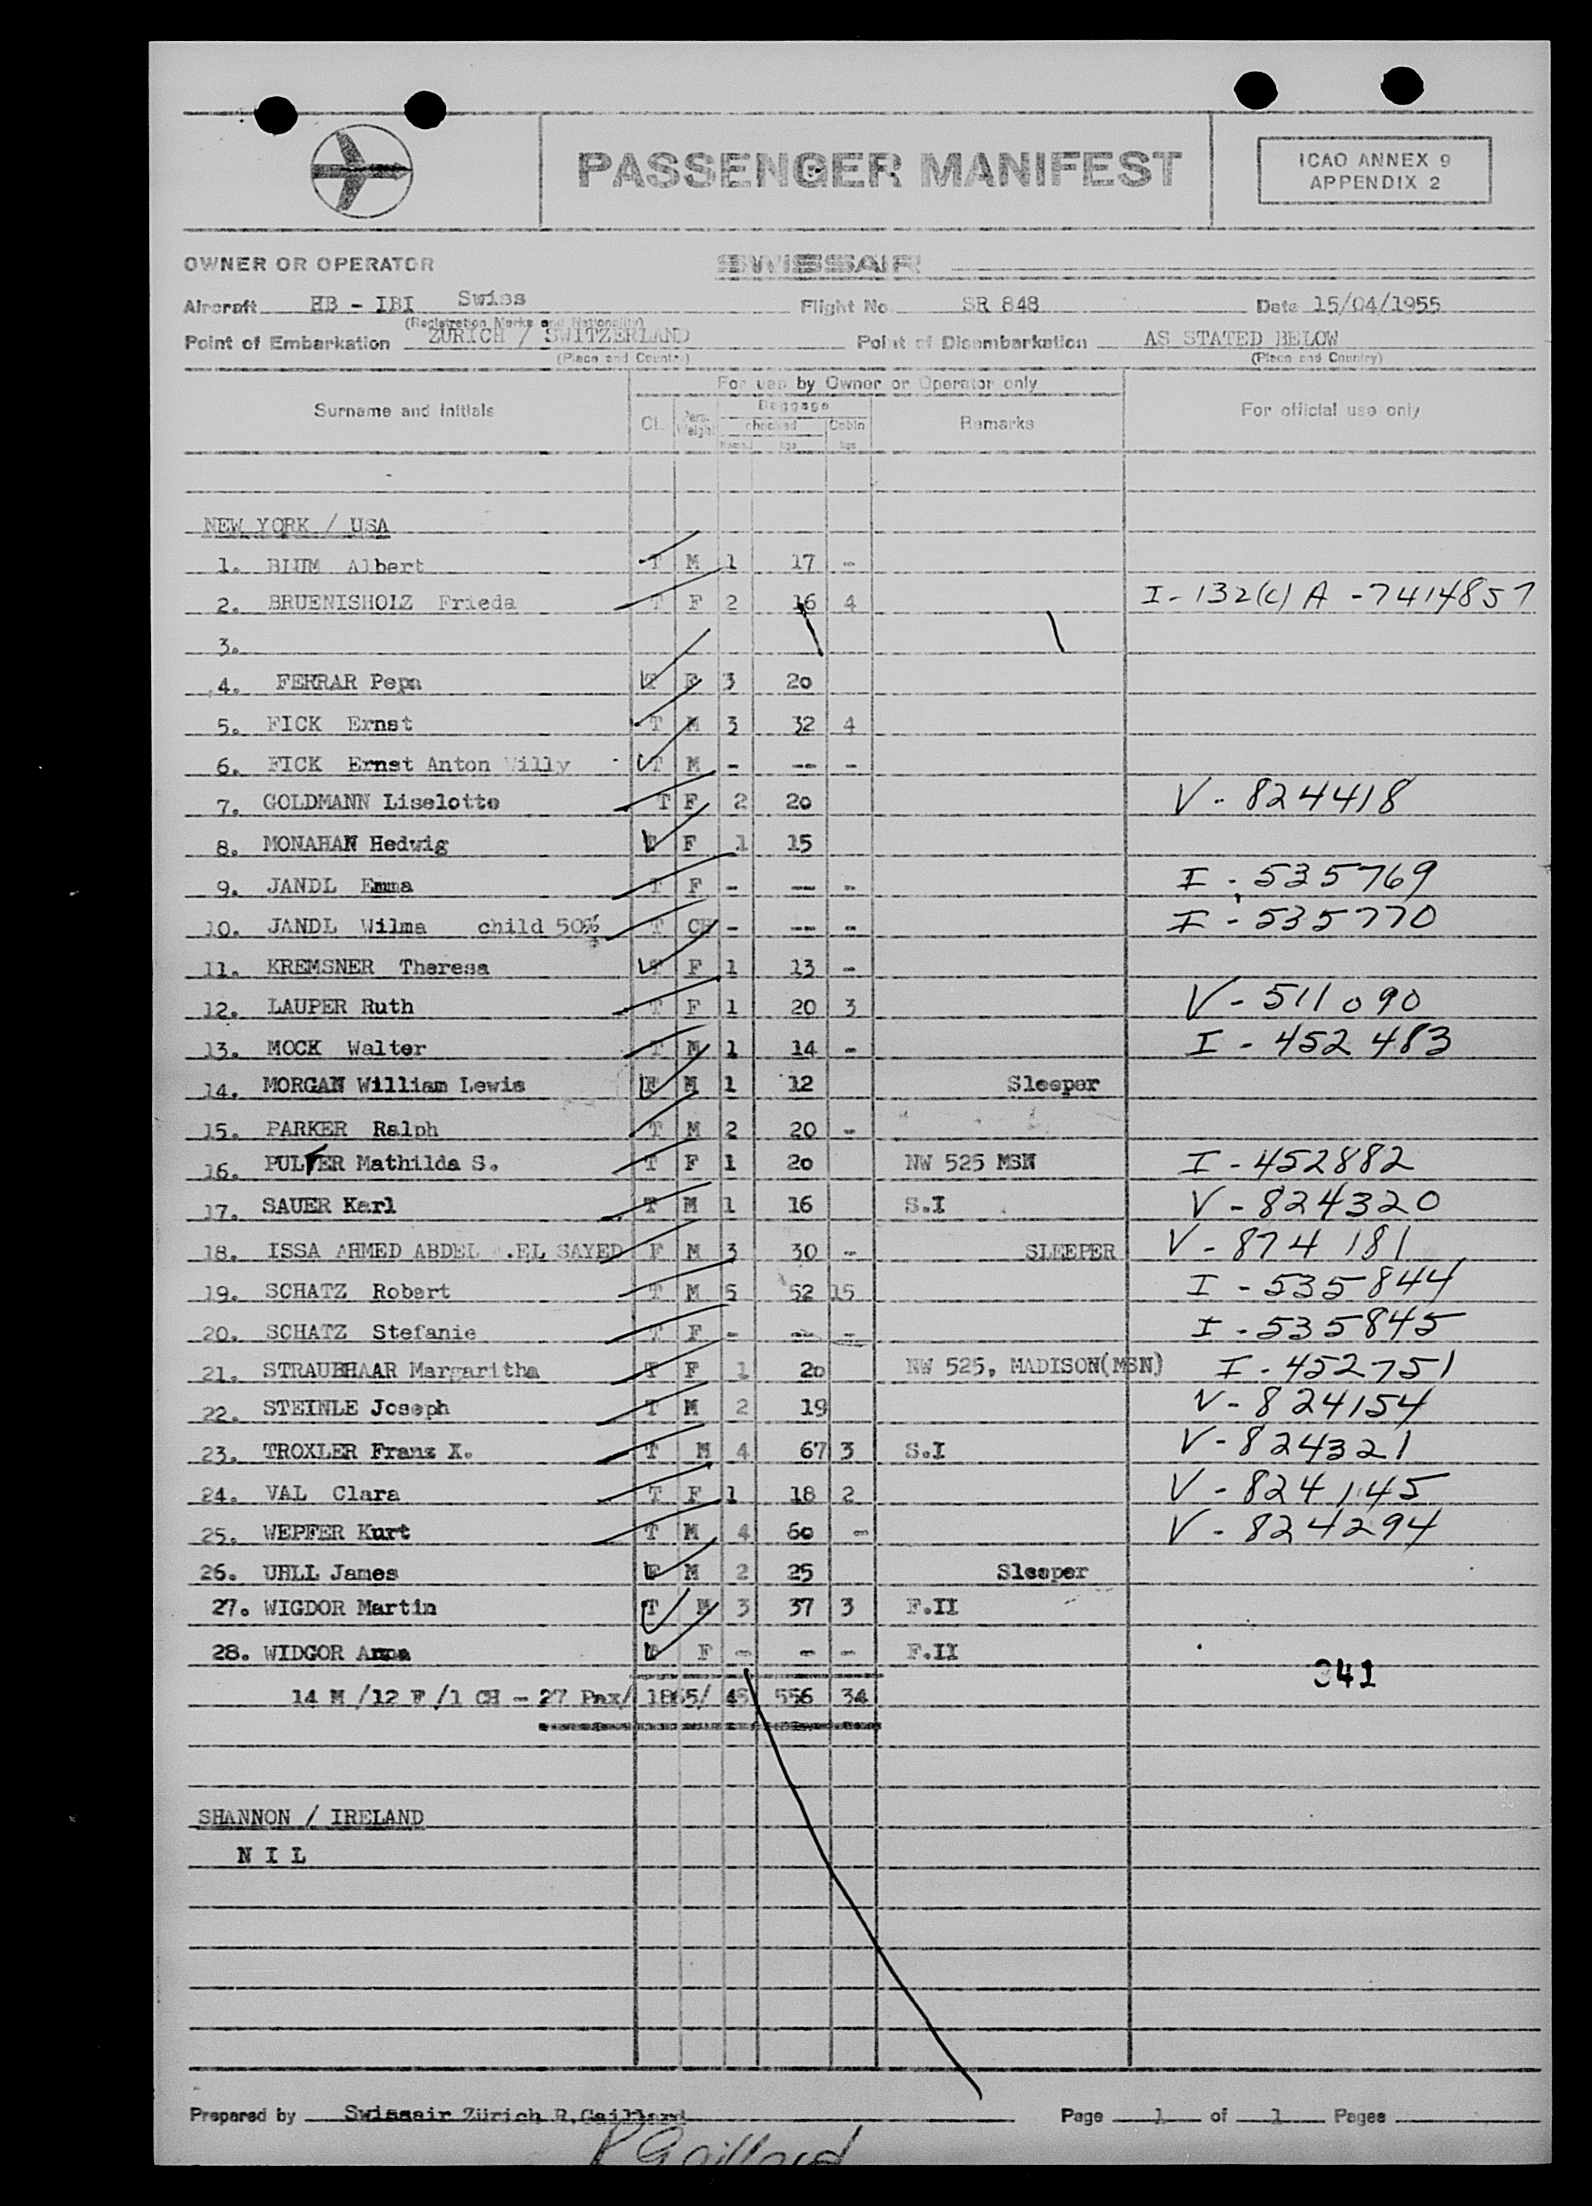 PASSENGER MANIFEST
ICAO ANNEX 9
APPENDIX 2
OWNER OR OPERATOR SWISSAIR
Aircraft HB - IBI Swiss Flight No SR 848 Date 15/04/1955
(Registration Marks and Nationality)
Point of Embarkation ZURICH / SWITZERLAND Point of Disembarkation AS STATED BELOW
(Place and Country) (Place and Country)
For use by Owner or Operator only
Surname and Initials Cl. Pers. Weight Baggage Remarks For official use only
checked Cabin
kgs kgs
NEW YORK / USA
1. BLUM Albert T M 1 17 -
2. BRUENISHOLZ Frieda T F 2 16 4 I-132(c) A-7414857
3.
4. FERRAR Pepa T F 3 20
5. FICK Ernst T M 3 32 4
6. FICK Ernst Anton Willy T M - -- -
7. GOLDMANN Liselotte T F 2 20 V-824418
8. MONAHAN Hedwig F 1 15
9. JANDL Emma T F - -- - I-535769
10. JANDL Wilma child 50% T CH - -- - I-535770
11. KREMSNER Theresa T F 1 13 -
12. LAUPER Ruth T F 1 20 3 V-511090
13. MOCK Walter T M 1 14 - I-452483
14. MORGAN William Lewis F M 1 12 Sleeper
15. PARKER Ralph T M 2 20 -
16. PULVER Mathilda S. T F 1 20 NW 525 MSN I-452882
17. SAUER Karl T M 1 16 S.I V-824320
18. ISSA AHMED ABDEL .EL SAYED F M 3 30 - SLEEPER V-874181
19. SCHATZ Robert T M 5 52 15 I-535844
20. SCHATZ Stefanie T F - -- - I-535845
21. STRAUBHAAR Margaritha T F 1 20 NW 525, MADISON(MSN) I-452751
22. STEINLE Joseph T M 2 19 V-824154
23. TROXLER Franz X. T M 4 67 3 S.I V-824321
24. VAL Clara T F 1 18 2 V-824145
25. WEPFER Kurt T M 4 60 - V-824294
26. UHLL James F M 2 25 Sleeper
27. WIGDOR Martin T M 3 37 3 F.II
28. WIDGOR Anna F - - - F.II
341
14 M /12 F /1 CH - 27 Pax/ 1865/ 45 556 34
SHANNON / IRELAND
N I L
Prepared by Swissair Zürich R.Gaillard Page 1 of 1 Pages
R Gaillard